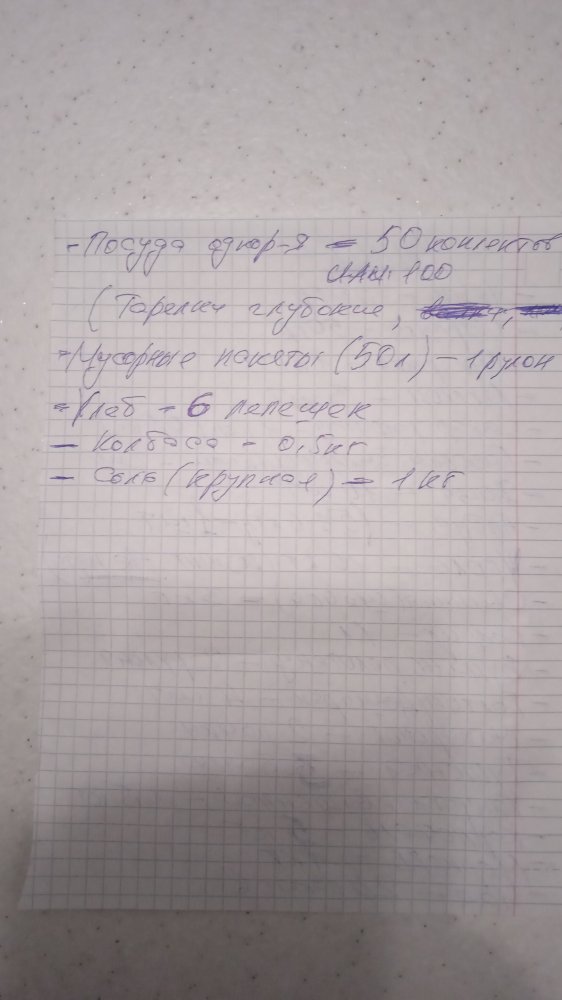 - Посуда однор-я - 50 комлектов
или 100
(Тарелки глубокие,
- Мусорные пакеты (50л) - 1 рулон
- Хлеб - 6 лепешек
- Колбаса - 0,5кг
- Соль (крупная) - 1 кг